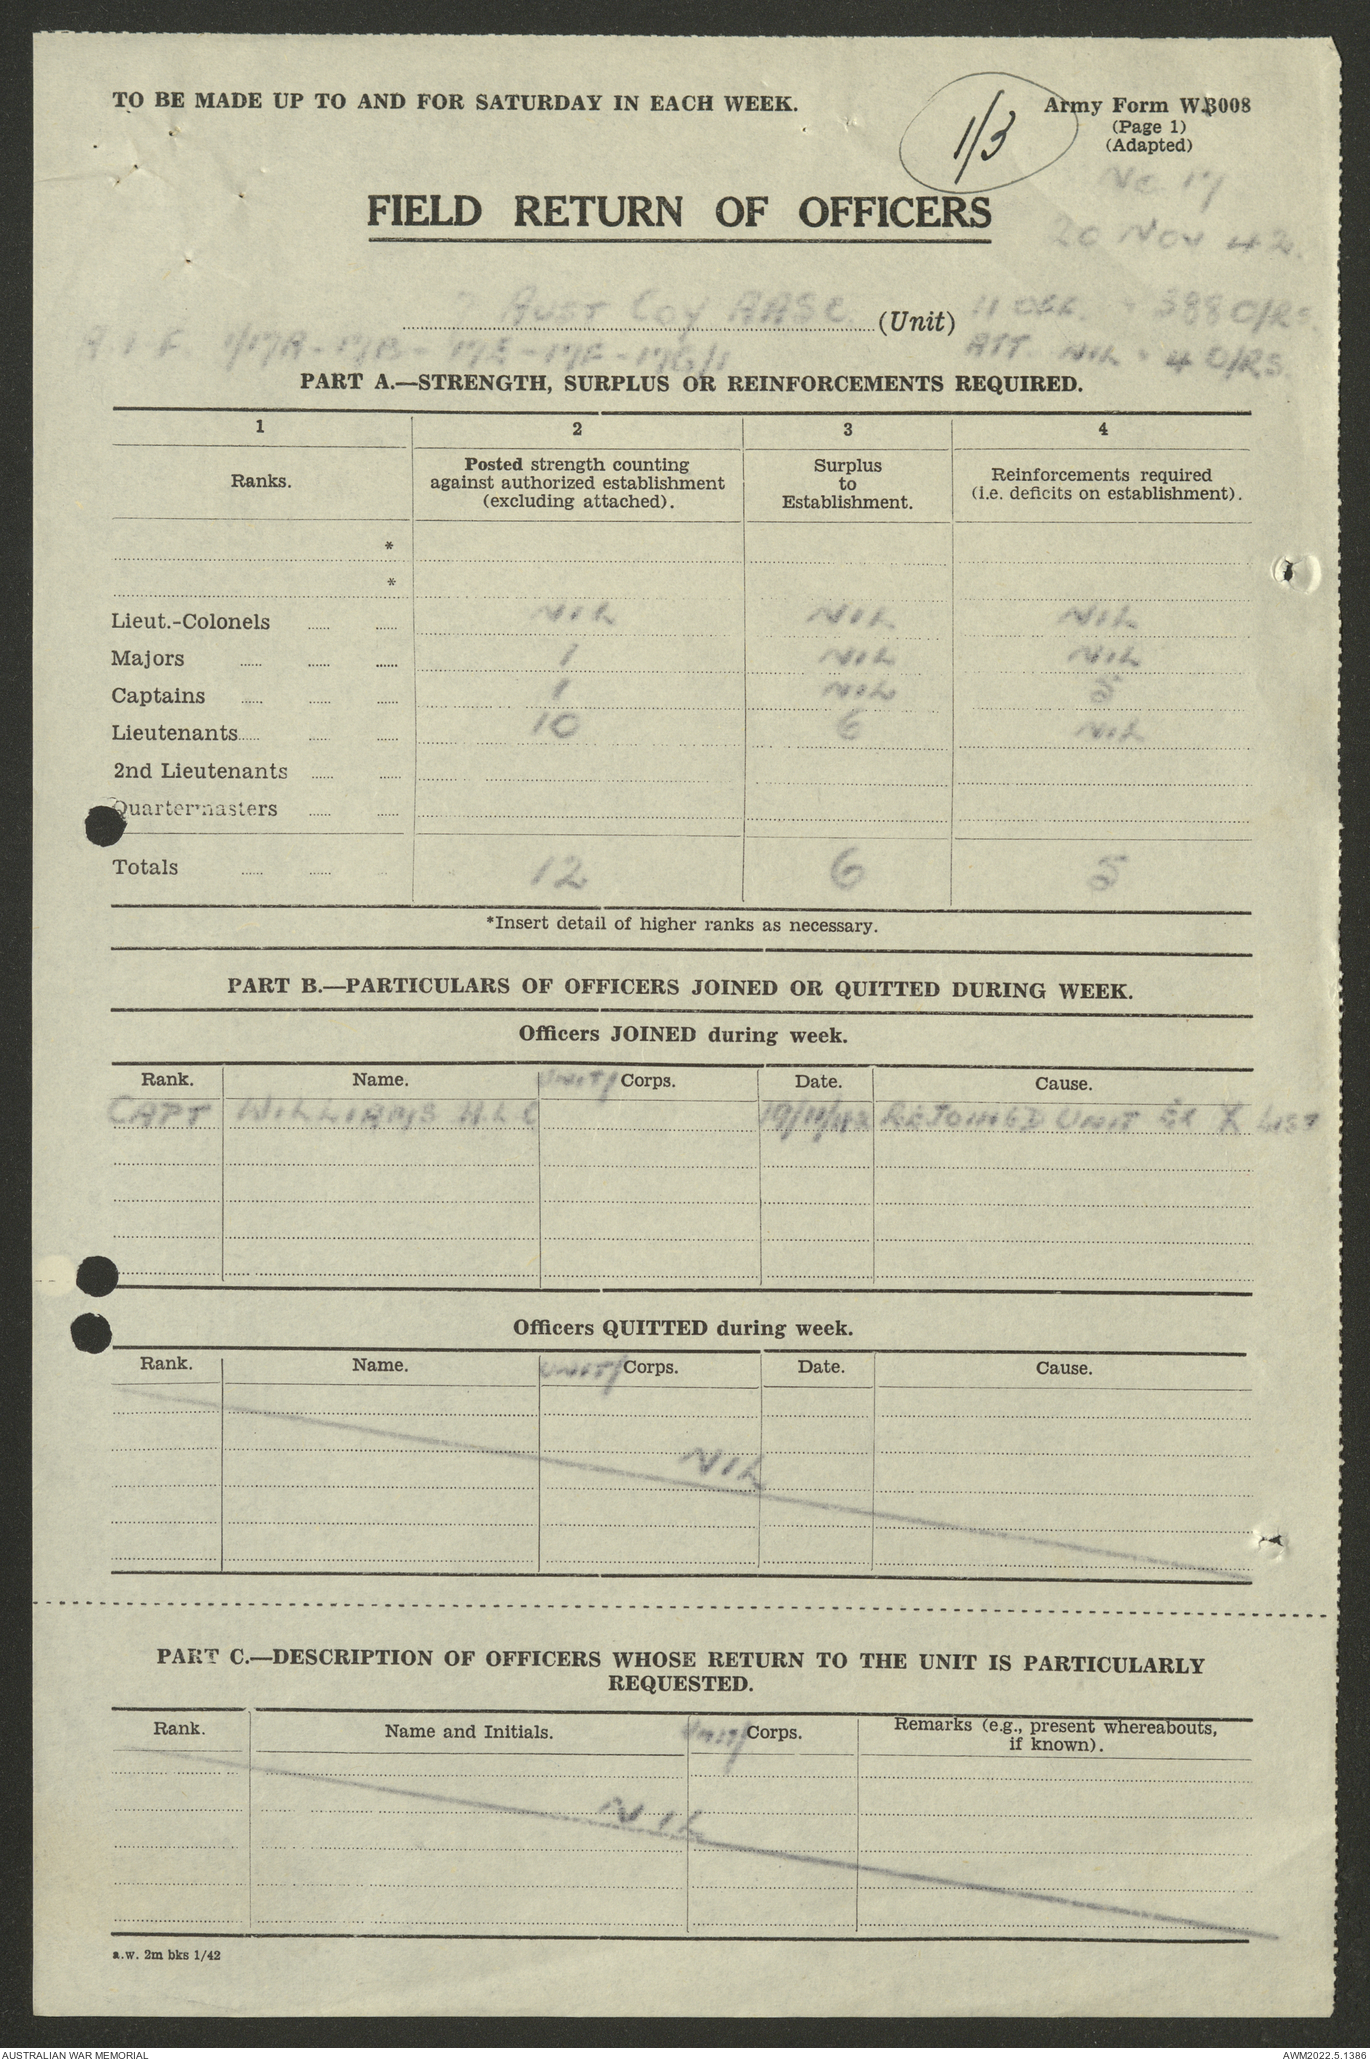 TO BE MADE UP TO AND FOR SATURDAY IN EACH WEEK.
1/3
Army Form W.3008
(Page 1)
(Adapted)
No. 17
20 NOV 42.
FIELD RETURN OF OFFICERS
AUST COY AASC. (Unit)
11 OFF. - 388 O/RS.
A.I.F 1/17A - 17B - 17E - 17F - 17G/1
ATT. NIL - 4 O/RS.
PART A.—STRENGTH, SURPLUS OR REINFORCEMENTS REQUIRED.
1 2 3 4
Ranks. Posted strength counting against authorized establishment (excluding attached). Surplus to Establishment. Reinforcements required (i.e. deficits on establishment).
*
*
Lieut.-Colonels NIL NIL NIL
Majors 1 NIL NIL
Captains 1 NIL 5
Lieutenants 10 6 NIL
2nd Lieutenants
Quartermasters
Totals 12 6 5
*Insert detail of higher ranks as necessary.
PART B.—PARTICULARS OF OFFICERS JOINED OR QUITTED DURING WEEK.
Officers JOINED during week.
Rank. Name. UNIT/ Corps. Date. Cause.
CAPT WILLIAMS H.L.C 19/11/42 REJOINED UNIT EX X LIST
Officers QUITTED during week.
Rank. Name. UNIT/ Corps. Date. Cause.
NIL
PART C.—DESCRIPTION OF OFFICERS WHOSE RETURN TO THE UNIT IS PARTICULARLY
REQUESTED.
Rank. Name and Initials. UNIT/ Corps. Remarks (e.g., present whereabouts, if known).
NIL
a.w. 2m bks 1/42
AUSTRALIAN WAR MEMORIAL
AWM2022.5.1386